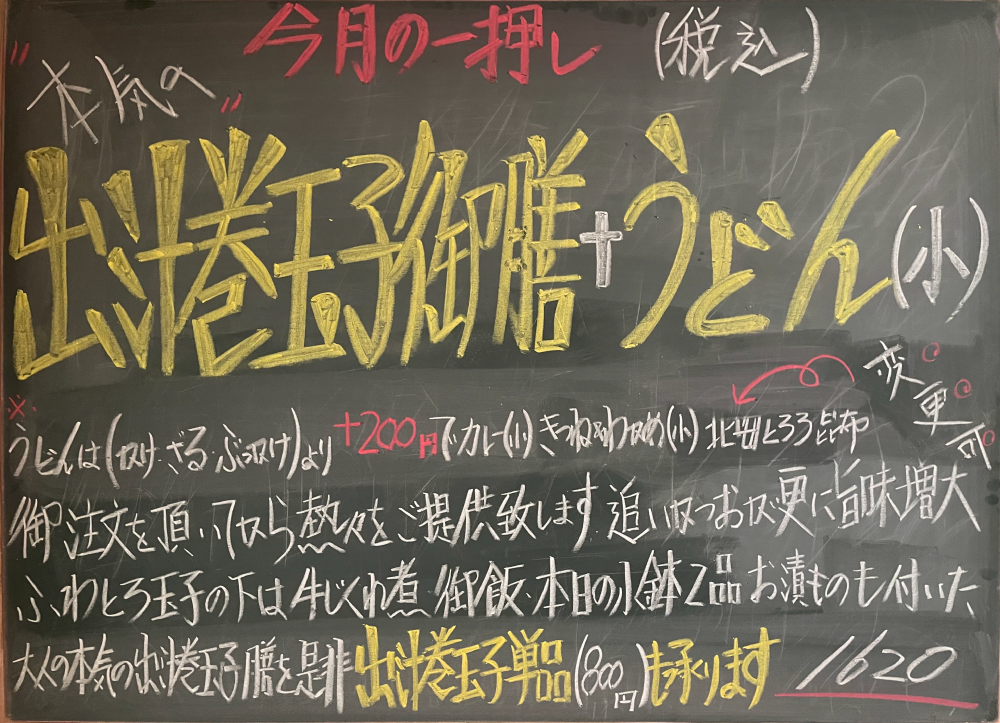 今月の一押し (税込)
"本気の"
出汁巻玉子御膳+うどん(小)
変更可
※うどんは(かけ・ざる・ぶっかけ)より+200円でカレー(小)きつねorわかめ(小)北曲とろろ昆布
御注文を頂いてから熱々をご提供致します 追いかつおが更に旨味増大
ふわとろ玉子の下は牛しぐれ煮 御飯・本日の小鉢2品 お漬ものも付いた
大人の本気の出汁巻玉子膳を是非 出汁巻玉子単品(800円)も承ります 1620